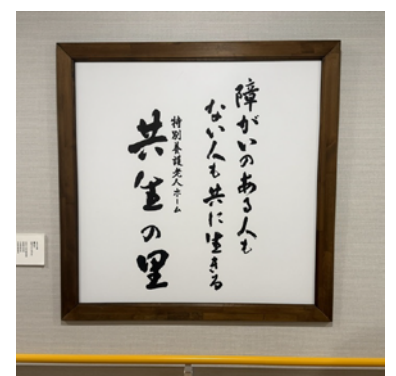 障がいのある人も
ない人も共に生きる
特別養護老人ホーム
共生の里